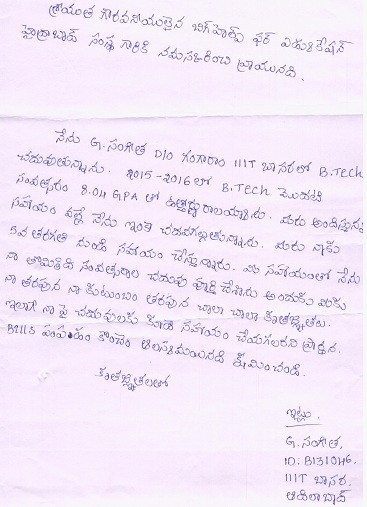 శ్రీయుత గౌరవనీయులైన బిగ్‌హెల్ప్ ఫర్ ఎడ్యుకేషన్
హైద్రాబాద్ సంస్థ గారికి నమస్కరించి వ్రాయునది.
నేను G. సంగీత D/O గంగారాం IIIT బాసరలో B.Tech
చదువుతున్నాను. 2015-2016 లో B.Tech మొదటి
సంవత్సరం 8.04 GPA తో ఉత్తీర్ణురాలయ్యాను. మీరు అందిస్తున్న
సహాయం వల్లే నేను ఇంత చదవగల్గుతున్నాను. మీరు నాకు
5వ తరగతి నుండి సహాయం చేస్తున్నారు. మీ సహాయంతో నేను
నా తొమ్మిది సంవత్సరాల చదువు పూర్తి చేశాను అందుకు మీకు
నా తరపున నా కుటుంబం తరపున చాలా చాలా కృతజ్ఞతలు.
ఇలాగే నా పై చదువులకు కూడా సహాయం చేయగలరని ప్రార్థన.
Bills పంపడం కొంచెం ఆలస్యమయినది క్షమించండి.
కృతజ్ఞతలతో
ఇట్లు.
G. సంగీత,
ID: B131046.
IIIT బాసర,
ఆదిలాబాద్